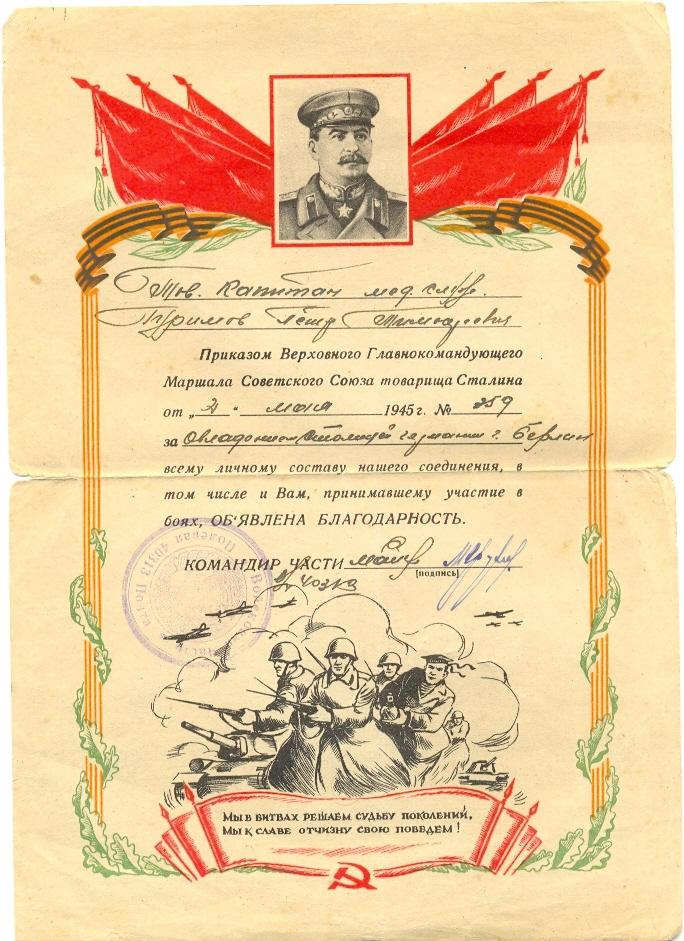 Тов. Капитан мед. служ.
Тимоурович
Приказом Верховного Главнокомандующего
Маршала Советского Союза товарища Сталина
от „2“ мая 1945 г. № 359
за Овладение столицей Германии г. Берлин
всему личному составу нашего соединения, в
том числе и Вам, принимавшему участие в
боях, ОБ'ЯВЛЕНА БЛАГОДАРНОСТЬ.
КОМАНДИР ЧАСТИ майор
(подпись)
Полевая Почта
Мы в битвах решаем судьбу поколений,
Мы к славе отчизну свою поведем!